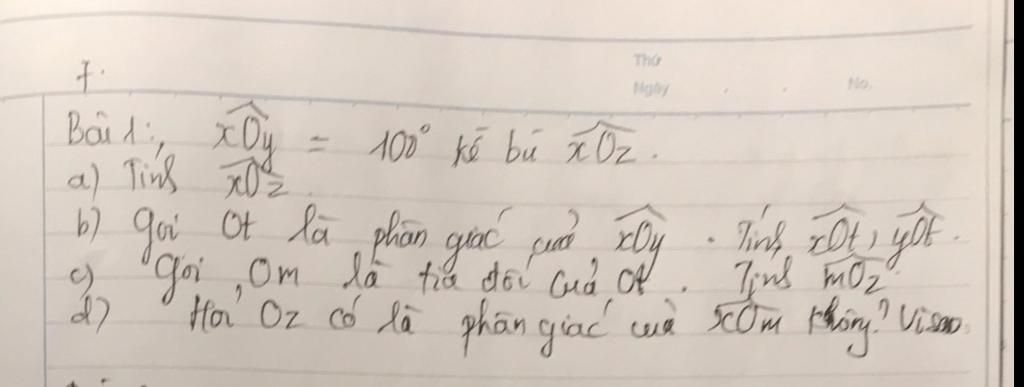 Thứ
7.
Ngày
No.
Bài 1:, xOy = 100° kề bù xOz.
a) Tính xOz
b) gọi Ot là phân giác của xOy. Tính xOt, yOt.
c) Gọi Om là tia đối của Ot. Tính mOz.
d) Hỏi Oz có là phân giác của xOm không? Vì sao